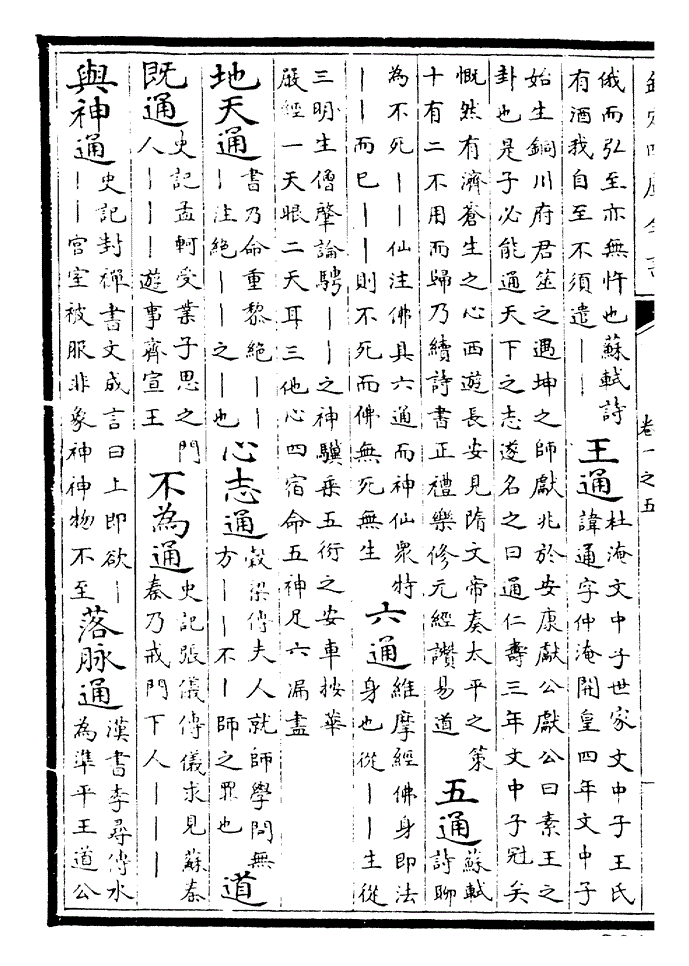 欽定四庫全書
卷一之五
俄而弘至亦無忤也蘇軾詩
有酒我自至不須遣丨丨
王通
杜淹文中子世家文中子王氏
諱通字仲淹開皇四年文中子
始生銅川府君筮之遇坤之師獻兆於安康獻公獻公曰素王之
卦也是子必能通天下之志遂名之曰通仁壽三年文中子冠矣
慨然有濟蒼生之心西遊長安見隋文帝奏太平之策
十有二不用而歸乃續詩書正禮樂修元經讚易道
五通
蘇軾
詩聊
為不死丨丨仙注佛具六通而神仙衆特
丨丨而已丨丨則不死而佛無死無生
六通
維摩經佛身即法
身也從丨丨生從
三明生僧肇論騁丨丨之神驥乗五衍之安車按華
嚴經一天眼二天耳三他心四宿命五神足六漏盡
地天通
書乃命重黎絶丨丨
丨注絶丨丨之丨也
心志通
榖梁傳夫人就師學問無
方丨丨不丨師之罪也
道
既通
史記孟軻受業子思之門
人丨丨丨遊事齊宣王
不為通
史記張儀傳儀求見蘇秦
秦乃戒門下人丨丨丨
與神通
史記封禪書文成言曰上即欲丨
丨丨宫室被服非象神神物不至
落脉通
漢書李尋傳水
為準平王道公